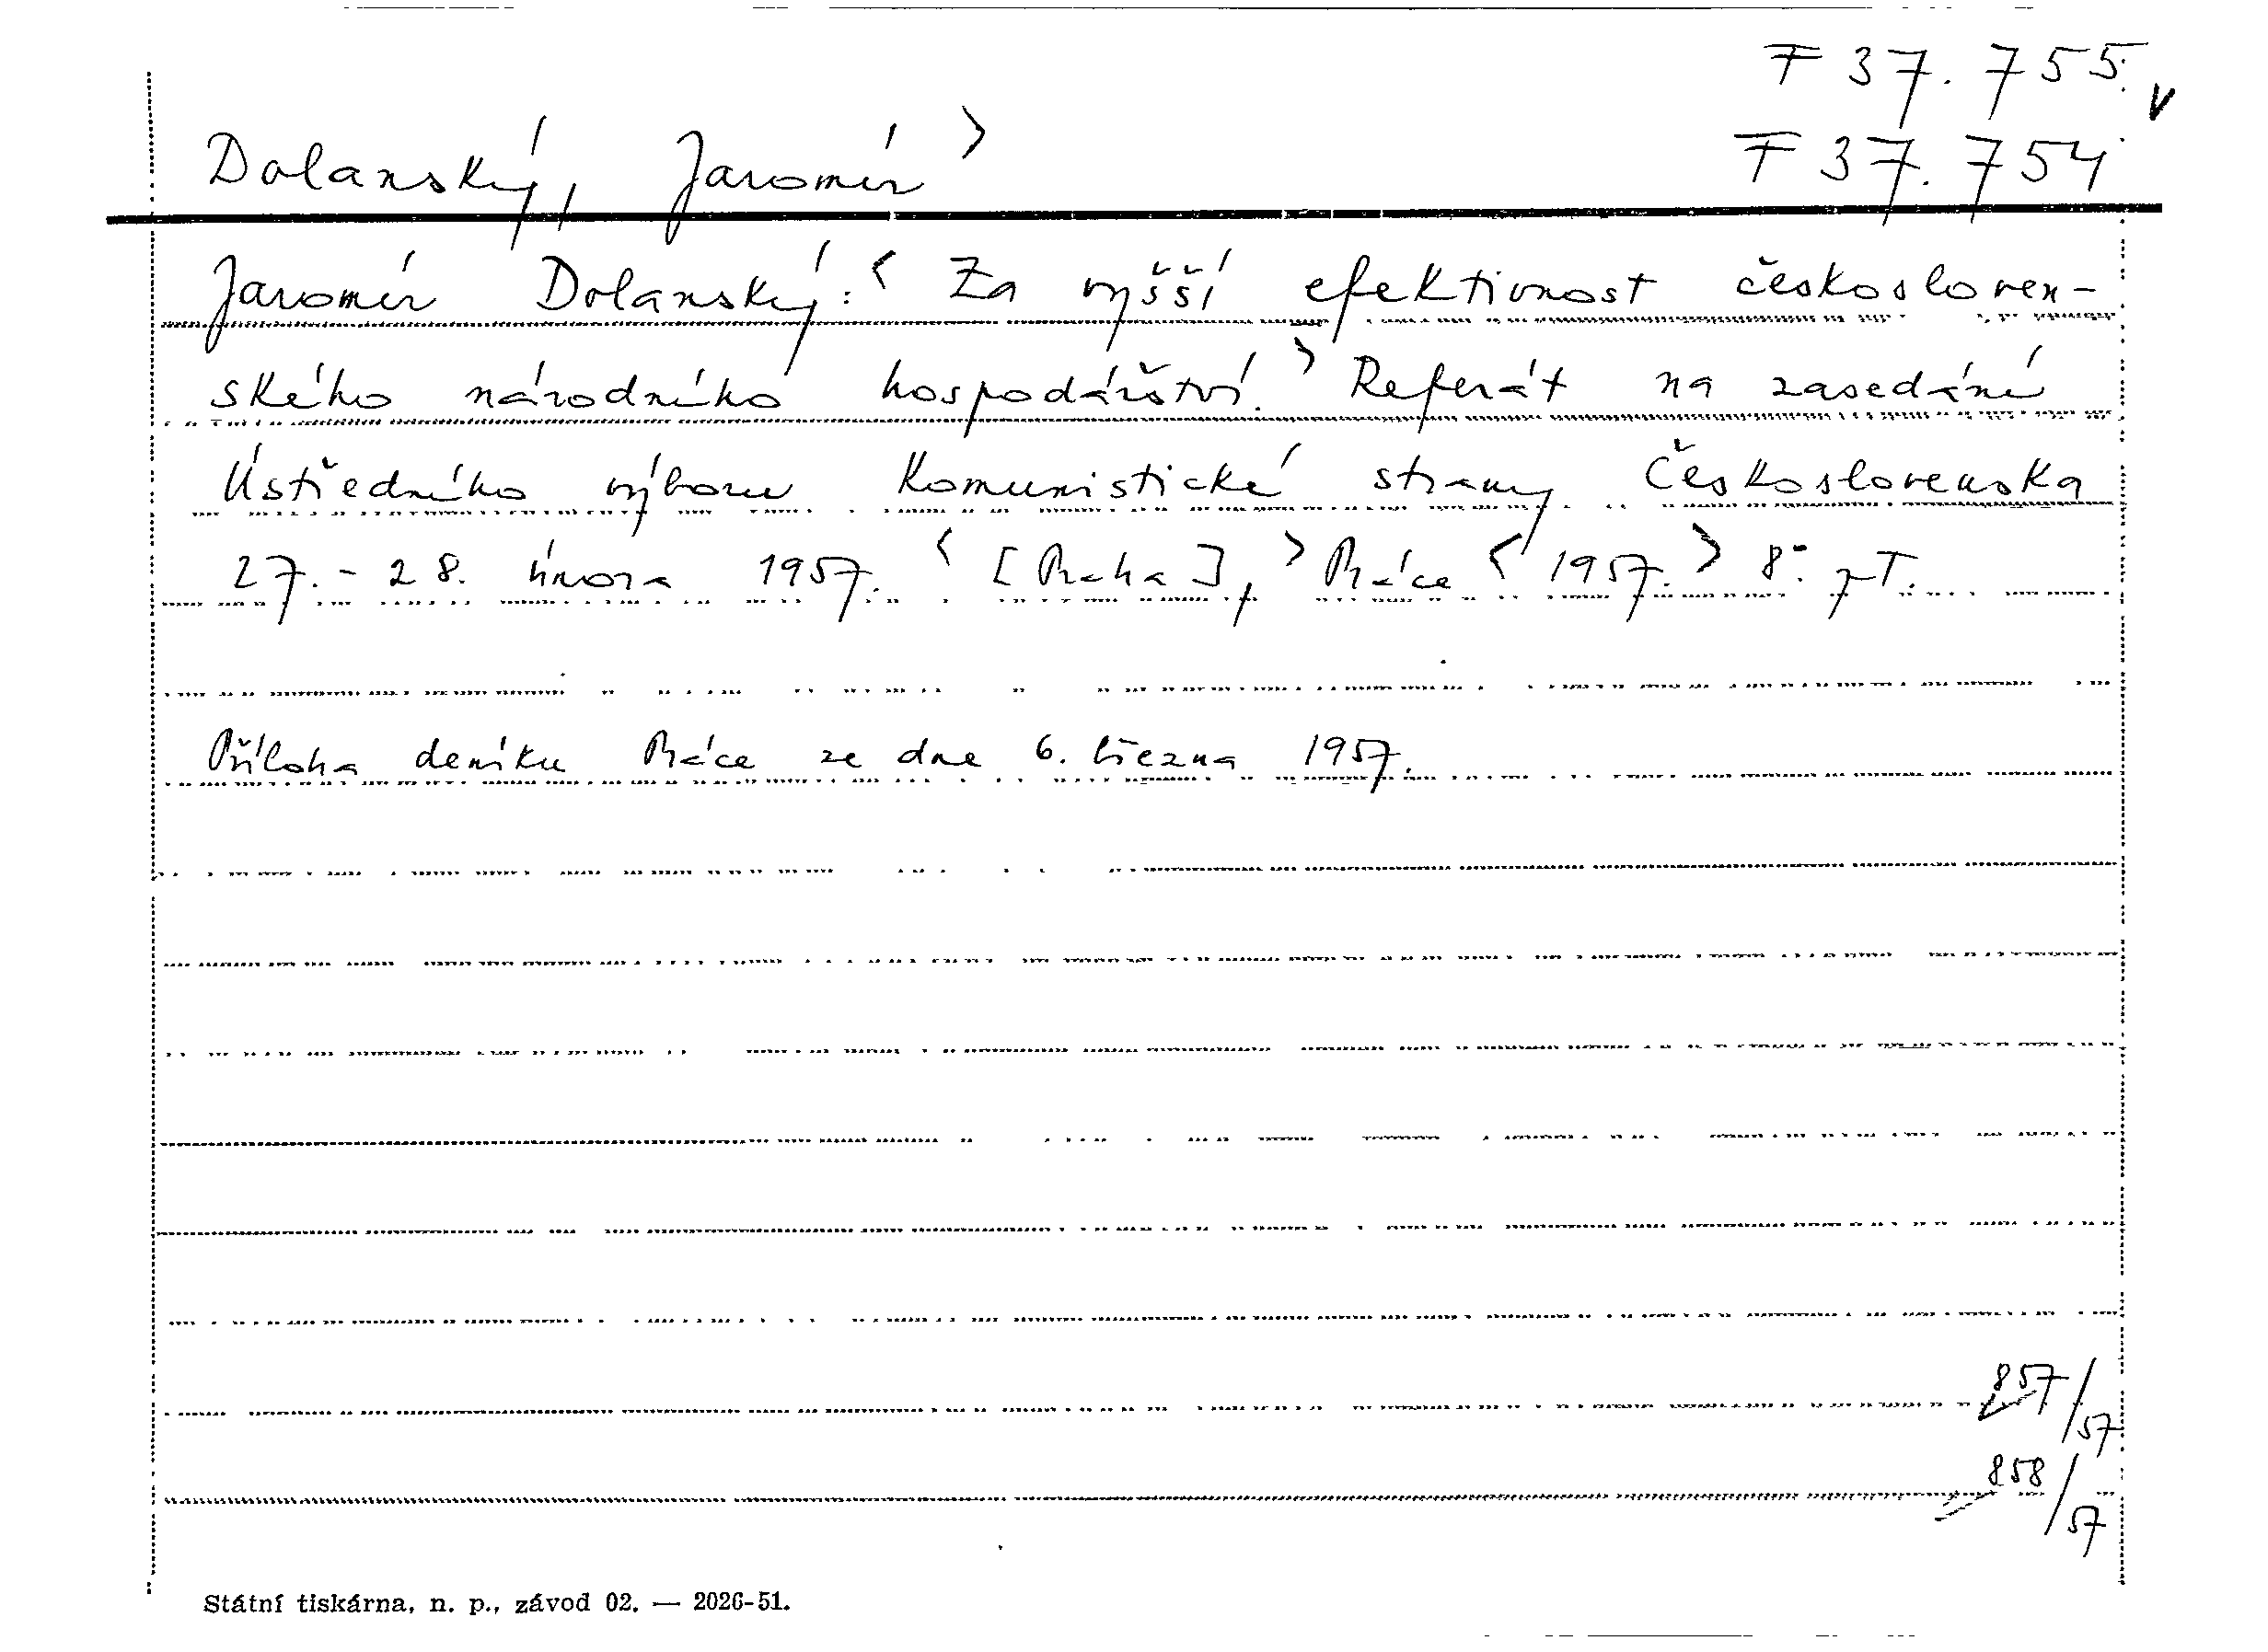 F 37.755. v
F 37.754
Dolanský, Jaromír >
Jaromír Dolanský: < Za vyšší efektivnost českosloven-
ského národního hospodářství. > Referát na zasedání
Ústředního výboru Komunistické strany Československa
27.-28. února 1957. < [Praha], > Práce < 1957. > 8°.
Příloha deníku Práce ze dne 6. března 1957.
857/57
858/57
Státní tiskárna, n. p., závod 02. — 2026-51.